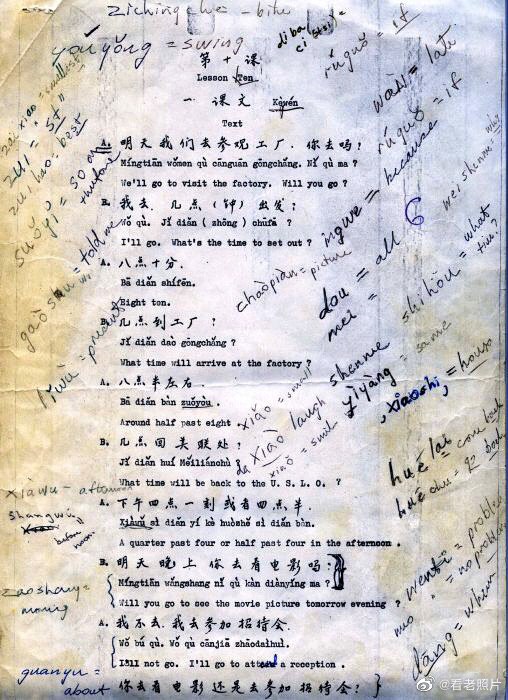 zichingche - bike
yóu yǒng = swing
diba (
ci
rúguǒ = if
第十课
Lesson Ten
wǎn = late
一 课文 Kèwén
Text
zuì xiǎo = smallest
zuì = "st"
zuì hǎo = best
rúguǒ = if
A. 明天我们去参观工厂. 你去吗?
Míngtiān wǒmen qù cānguān gōngchǎng. Nǐ qù ma ?
We'll go to visit the factory. Will you go ?
suǒyǐ = so or therefore
ingwe = because
wei shenme = why
B. 我去. 几点(钟)出发?
Wǒ qù. Jǐ diǎn ( zhōng ) chūfā ?
I'll go. What's the time to set out ?
6
gaòsu = told me
A. 八点十分.
Bā diǎn shífēn.
Eight ton.
chàopiàn = picture
dou = all
mei =
shenme shíhòu = what time?
B. 几点到工厂?
Jǐ diǎn dào gōngchǎng ?
What time will arrive at the factory ?
lǐwù = present
yīyàng = same
A. 八点半左右.
Bā diǎn bàn zuǒyòu .
Around half past eight .
xiǎo = small
xiào laugh
xiào = smile
xiǎoshí = hour
B. 几点回美联处?
Jǐ diǎn huí Měiliánchù ?
What time will be back to the U. S. L. O. ?
huí lai = come back
huí chu = go back
xiàwu - afternoon
A. 下午四点一刻或者四点半.
Xiàwǔ sì diǎn yí kè huòshě sì diǎn bàn.
A quarter past four or half past four in the afternoon .
shangwu
before noon
B. 明天晚上你去看电影吗?
Míngtiān wǎngshang nǐ qù kàn diànyǐng ma ?
Will you go to see the movie picture tomorrow evening ?
wenti = problem
= no problem
zaoshang = morning
A. 我不去. 我去参加招待会.
Wǒ bú qù. Wǒ qù cānjiā zhāodaihuì.
I'll not go. I'll go to attend a reception .
guanyu = about
你去看电影还是去参加招待会?